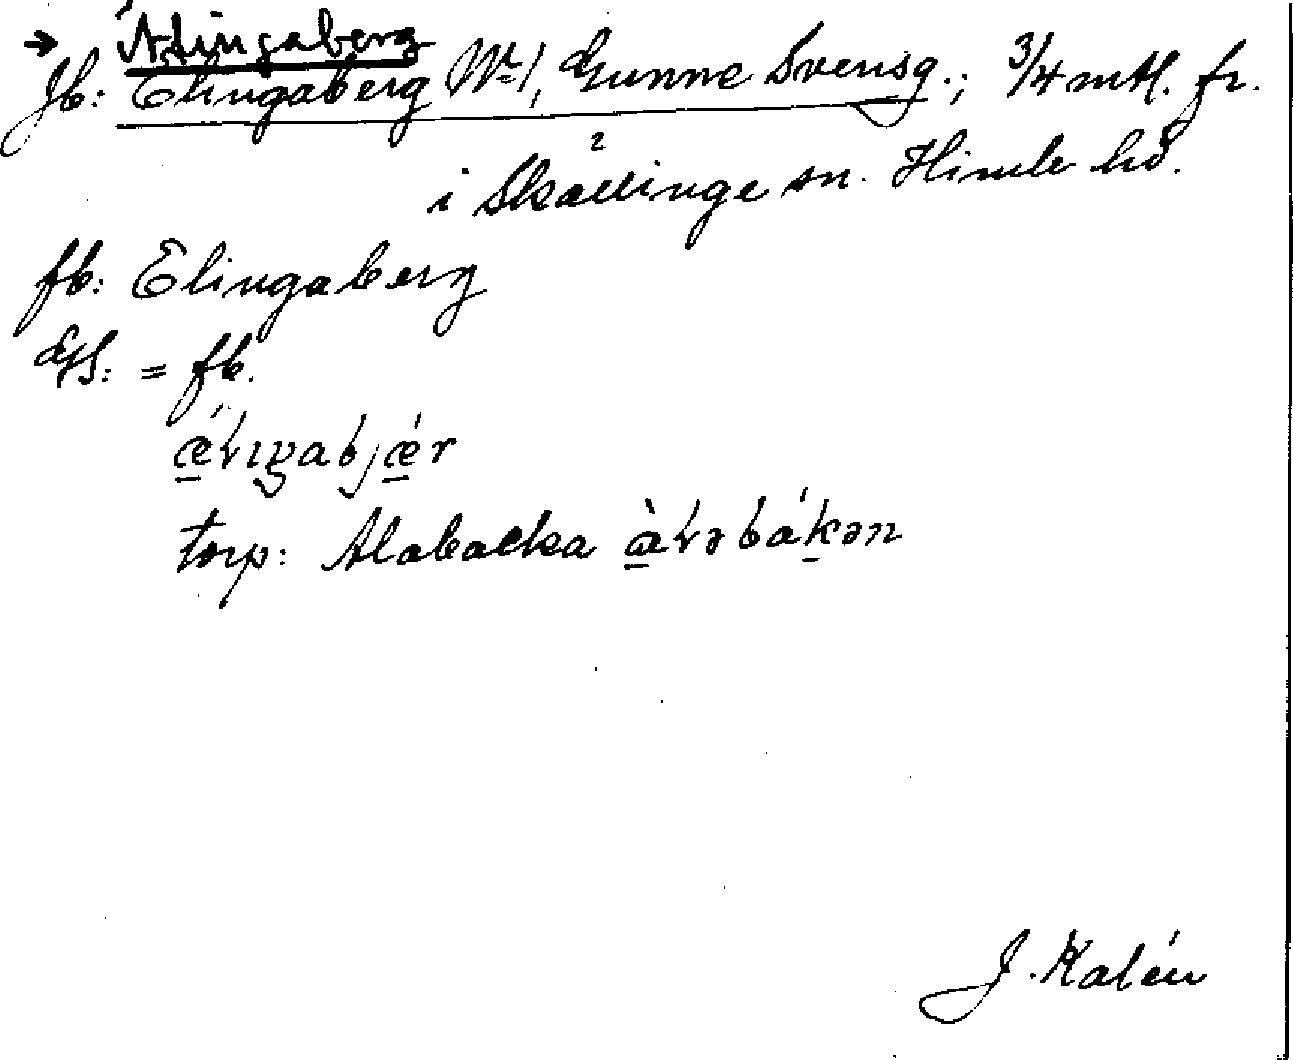 → Älingaberg
Jb: Elingaberg Nr 1, Gunne Svensg.; 3/4 mtl. fr.
i Skällinge sn. Himle hd.
fb: Elingaberg
= fb.
torp: Alabacka
J. Kalén